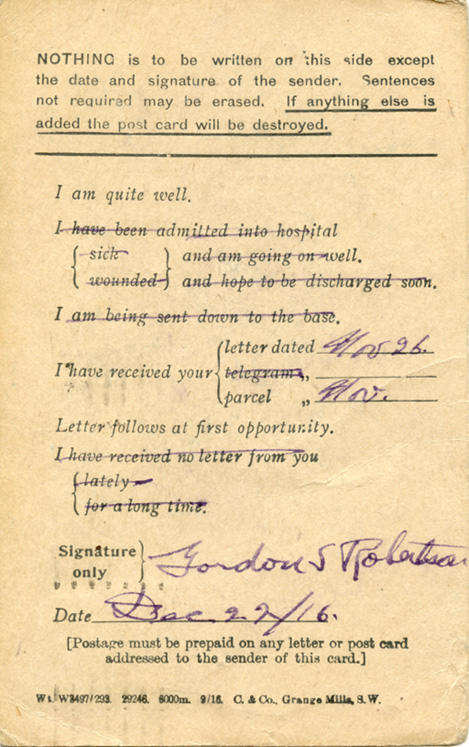 NOTHING is to be written on this side except
the date and signature of the sender. Sentences
not required may be erased. If anything else is
added the post card will be destroyed.
I am quite well.
I have been admitted into hospital
sick and am going on well.
wounded and hope to be discharged soon.
I am being sent down to the base.
letter dated Nov 26.
I have received your telegram „
parcel „ Nov.
Letter follows at first opportunity.
I have received no letter from you
lately
for a long time.
Signature
only
Gordon S Robertson
Date Dec 22/16.
[Postage must be prepaid on any letter or post card
addressed to the sender of this card.]
Wt. W3497/293. 29246. 6000m. 9/16. C. & Co., Grange Mills, S.W.